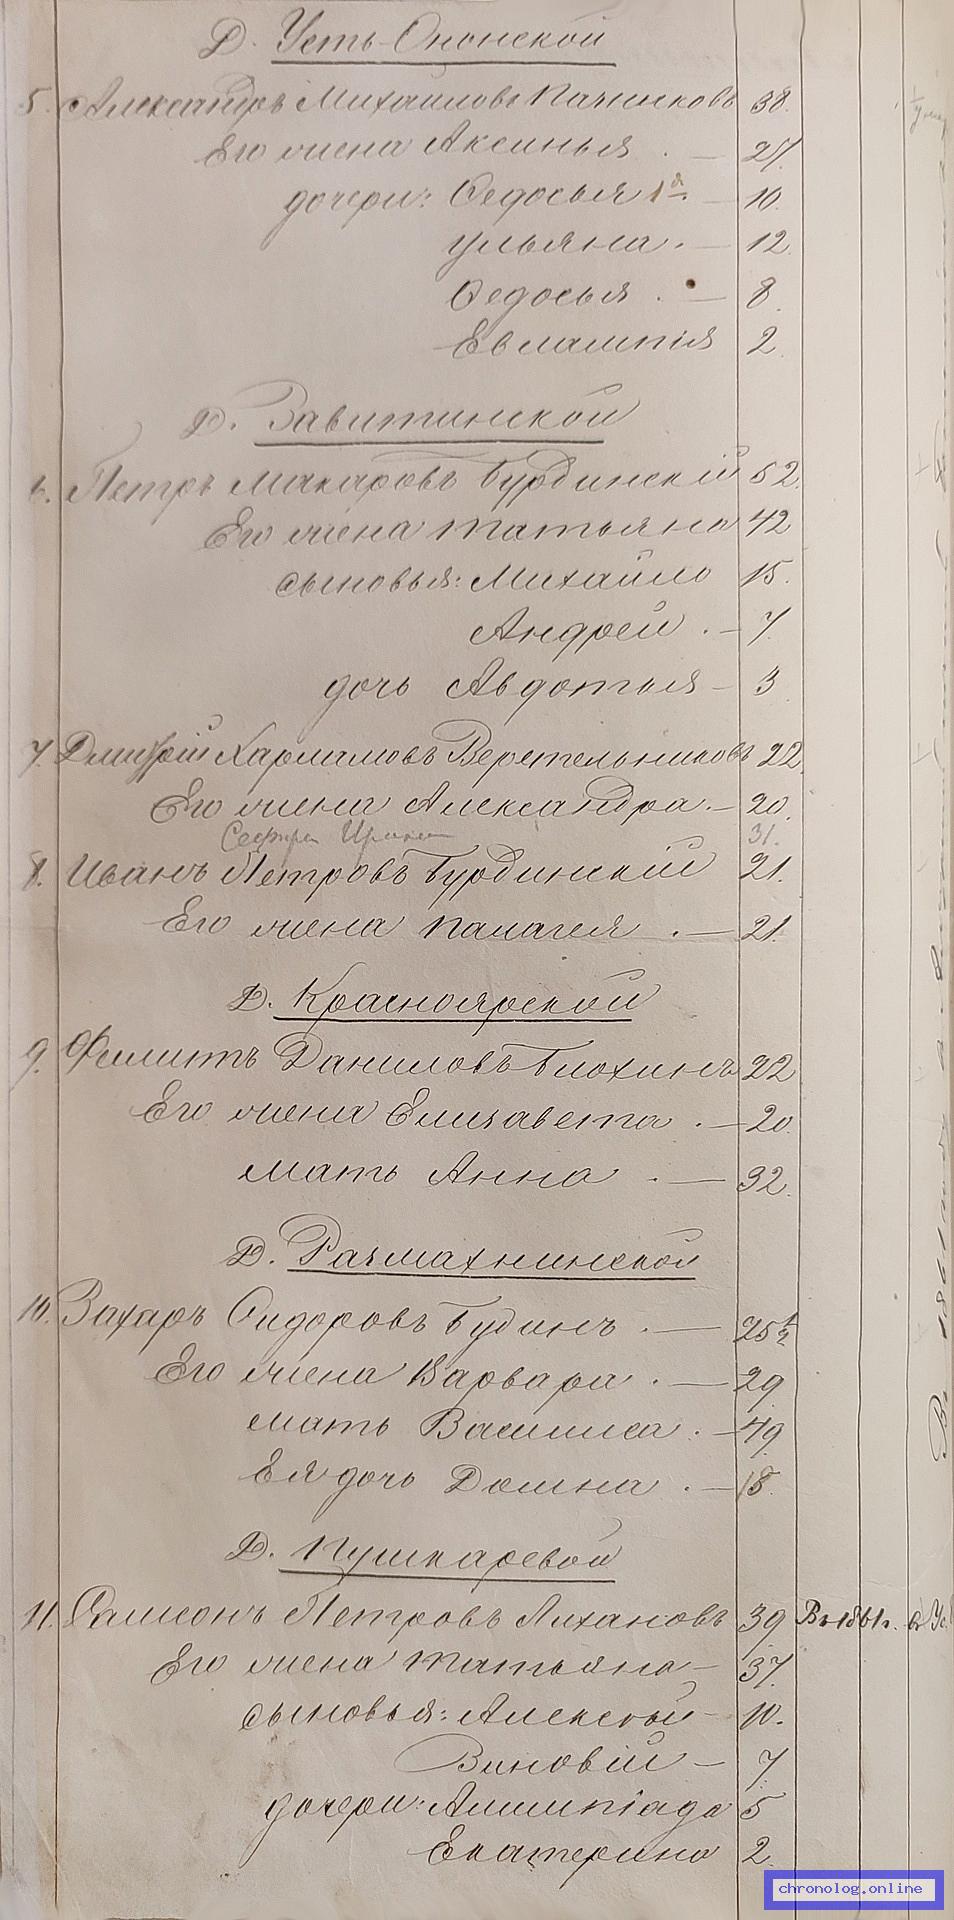 Д. Усть-Ононской
5. Александръ Михаиловъ Пачниковъ 38.
Его жена Аксинья . — 27.
дочери: Федосья 1я. — 10.
Ульяна. — 12
Федосья . — 8.
Евлампія 2.
Д. Завитинской
6. Петръ Макаровъ Бурдинскій 52.
Его жена Татьяна 42
сыновья: Михайло 15.
Андрей . — 7.
дочь Авдотья — 3
7. Дмитрій Харламовъ Веретельниковъ 22.
Его жена Александра. — 20.
Сестра Ирина 31.
8. Иванъ Петровъ Бурдинскій 21.
Его жена Палагея . — 21.
Д. Красноярской
9. Филитъ Даниловъ Блохинъ 22
Его жена Елизавета . — 20.
мать Анна . — 32.
Д. Размахнинской
10. Захаръ Сидоровъ Будинъ . — 25 1/2
Его жена Варвара . — 29.
мать Василиса . — 49.
Ея дочь Домна . — 18.
Д. Пушкаревой
11. Самсонъ Петровъ Лихановъ 39 Въ 1861 г. въ Ус
Его жена Татьяна — 37.
сыновья: Алексѣй — 10.
Зиновій — 7.
дочери: Алимпіада 5
Екатерина 2.
chronolog.online